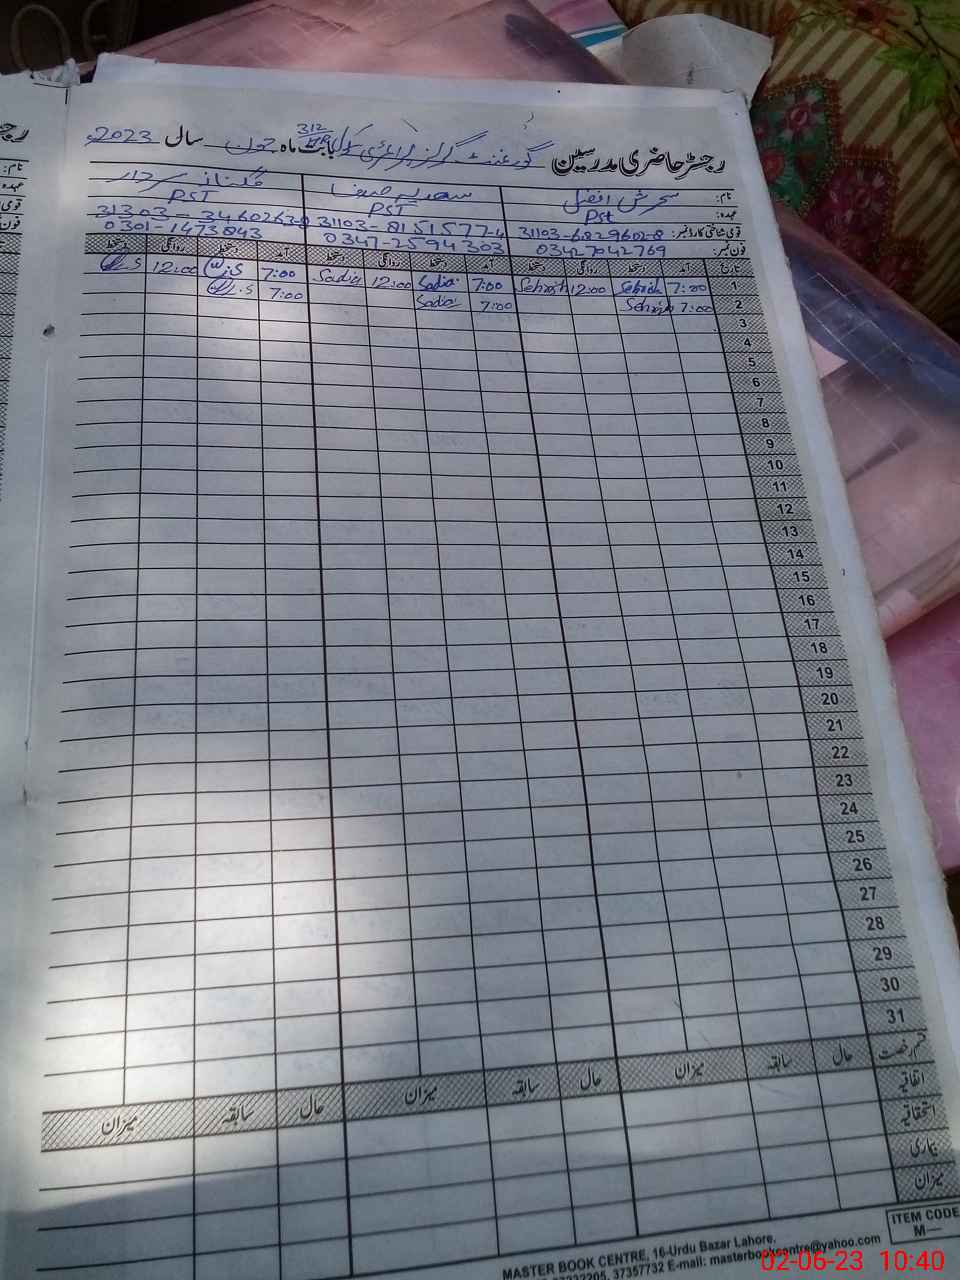 رجسٹر حاضری مدرسین گورنمنٹ گرلز پرائمری سکول 312 بابت ماہ جون سال 2023ء
نام: سحرش افضل سعدیہ
عہدہ: Pst PST PST
قومی شناختی کارڈ نمبر: 31103-6829602-8 31103-8151577-4 31303-3460263-
فون نمبر: 03427042769 0347-2594303 0301-1473843
تاریخ آمد دستخط روانگی دستخط آمد دستخط روانگی دستخط آمد دستخط روانگی دستخط
1 7:00 Sehrish 12:00 Sehrish 7:00 Sadia 12:00 Sadia 7:00 12:00
2 7:00 Sehrish 7:00 Sadia 7:00
3
4
5
6
7
8
9
10
11
12
13
14
15
16
17
18
19
20
21
22
23
24
25
26
27
28
29
30
31
قسم رخصت حال سابقہ میزان حال سابقہ میزان حال سابقہ میزان
اتفاقیہ
استحقاقیہ
بیماری
میزان
ITEM CODE
M—
MASTER BOOK CENTRE, 16-Urdu Bazar Lahore.
37357732 E-mail: masterbookcentre@yahoo.com
02-06-23 10:40